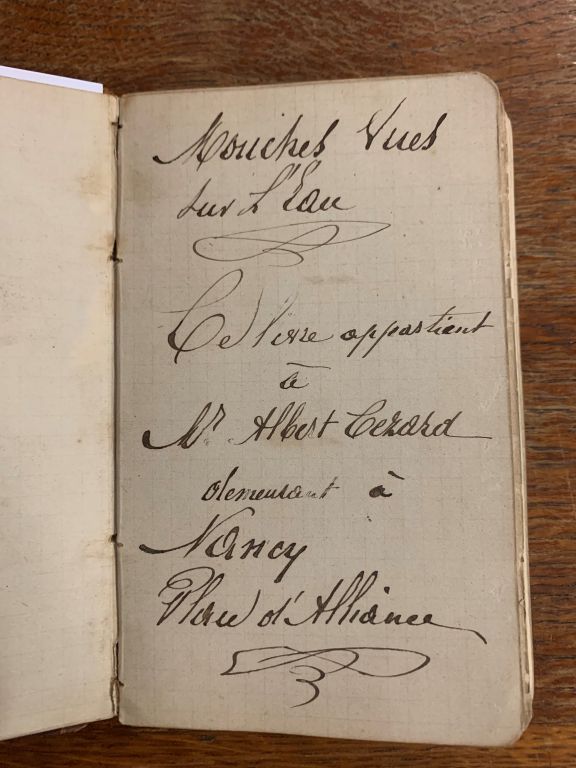 Mouches Vues
sur L'Eau
Ce livre appartient
à
Mr Albert Cezard
demeurant à
Nancy
Place d'Alliance